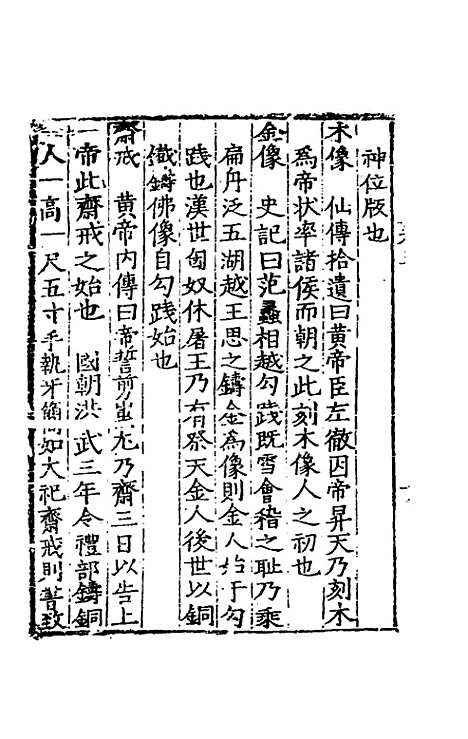 神位版也
木像　仙傳拾遺曰黄帝臣左徹因帝昇天乃刻木
爲帝状率諸侯而朝之此刻木像人之初也
金像　史記曰范蠡相越勾踐既雪會稽之耻乃乘
扁舟泛五湖越王思之鑄金爲像則金人始于勾
踐也漢世匈奴休屠王乃有祭天金人後世以銅
鐵鑄佛像自勾踐始也
齋戒　黄帝内傳曰帝誓剪蚩尤乃齋三日以告上
帝此齋戒之始也　國朝洪武三年令禮部鑄銅
人一高一尺五寸手執牙簡如大祀齋戒則書致